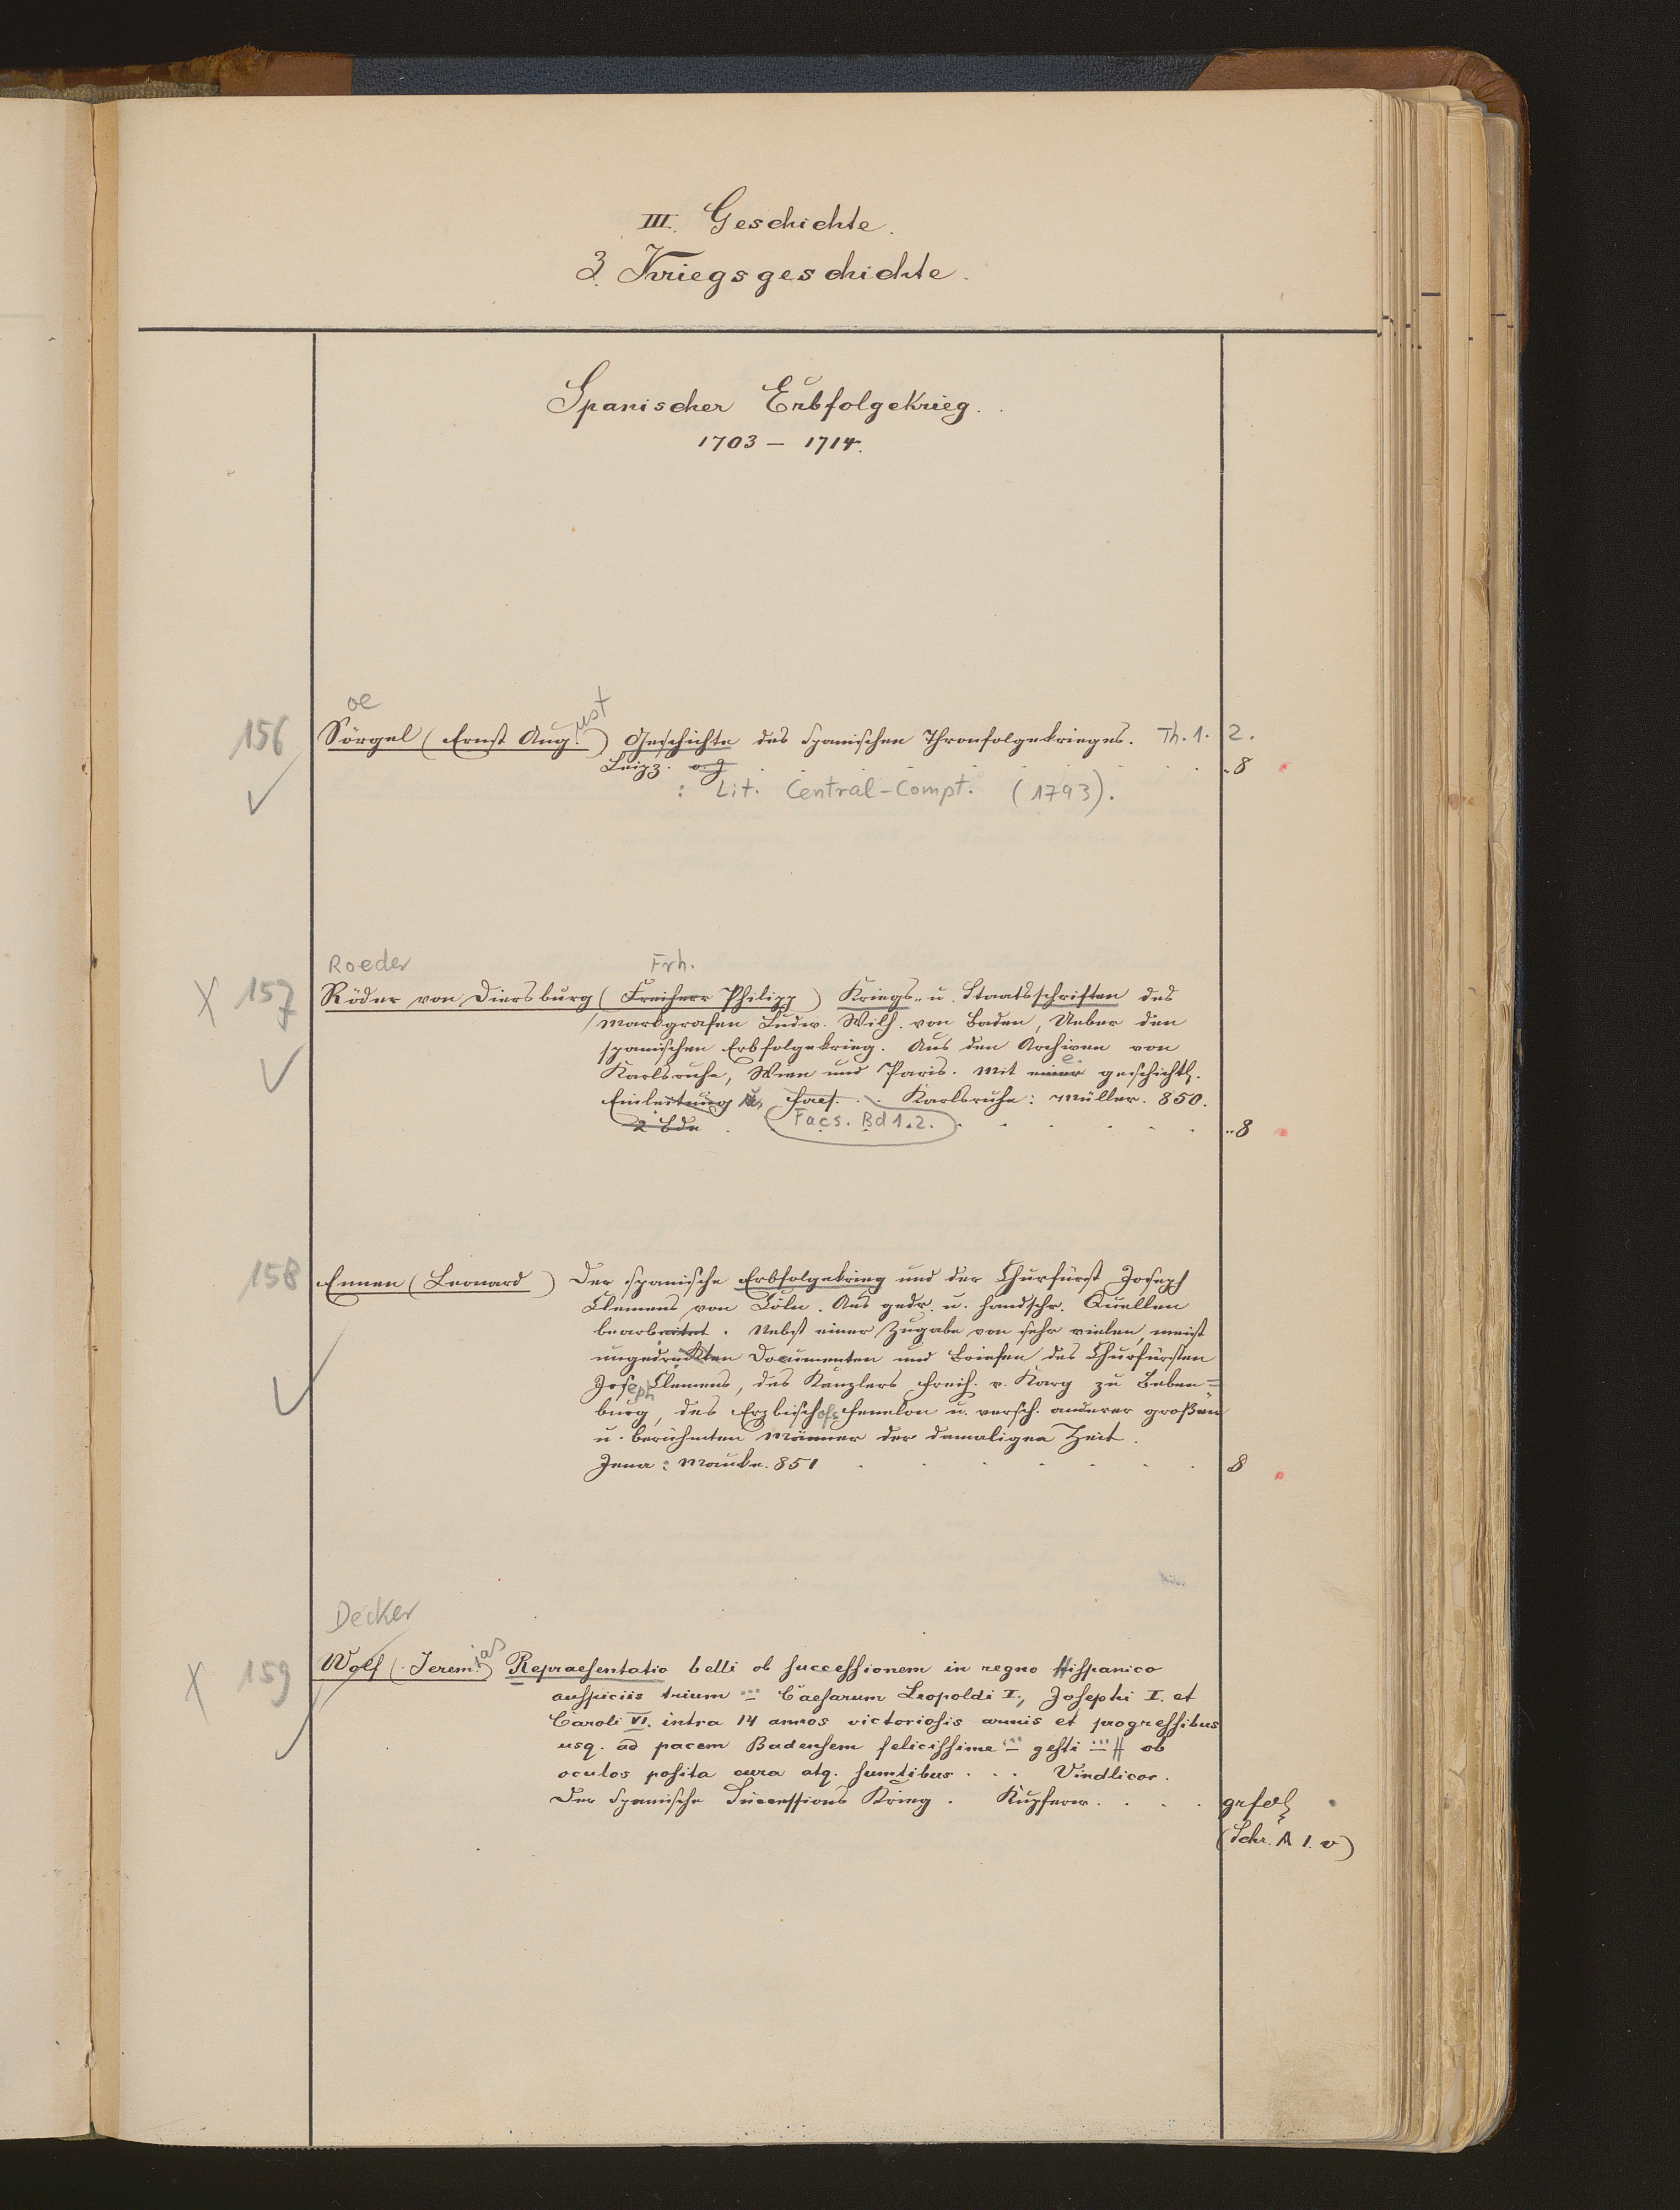 III. Geschichte.
3. Kriegsgeschichte.
Spanischer Erbfolgekrieg.
1703 – 1714.
oe
156 Sörgel (Ernst Aug. ust) Geschichte des Spanischen Thronfolgekrieges. Th. 1. 2.
Leipz. o. J. 8
: Lit. Central-Compt. (1793).
Roeder Frh.
X 157 Röder von Diersburg (Freiherr Philipp) Kriegs- u. Staatsschriften des
Markgrafen Ludw. Wilh. von Baden, Ueber den
spanischen Erbfolgekrieg. Aus den Archiven von
Karlsruhe, Wien und Paris. Mit einer e. geschichtl.
Einleitung u. Facs. Karlsruhe: Müller. 850.
2 Bde Facs. Bd 1.2. 8
158 Ennen (Leonard) Der spanische Erbfolgekrieg und der Churfürst Joseph
Clemens von Cöln. Aus gedr. u. handschr. Quellen
bearbeitet. Nebst einer Zugabe von sehr vielen, meist
ungedruckten Documenten und Briefen des Churfürsten
Joseph Clemens, des Kanzlers Freih. v. Karg zu Beben=
burg, des Erzbischofs Fenelon u. versch. anderer großen
u. berühmten Männer der damaligen Zeit.
Jena: Mauke. 851 8
Decker
X 159 Wolf (Jerem. ias) Repraesentatio belli ob successionem in regno Hispanico
auspiciis trium ... Caesarum Leopoldi I., Josephi I. et
Caroli VI. intra 14 annos victoriosis armis et progressibus
usq. ad pacem Badensem felicissime ... gesti ... ob
oculos posita cura atq. sumtibus . . . Vindlicor.
Der Spanische Successions Krieg. Kupferw. grfol
(Schr. A 1. v)